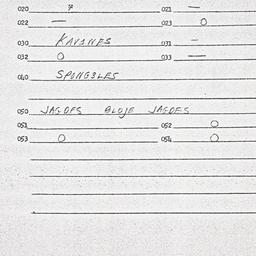 020 * 021 —
022 — 023 0
030 KAVINES 031 –
032 0 033 —
040 SPINGSLES
050 JAGOFS BLOJE JAGOFS
051 052 0
053 0 054 0